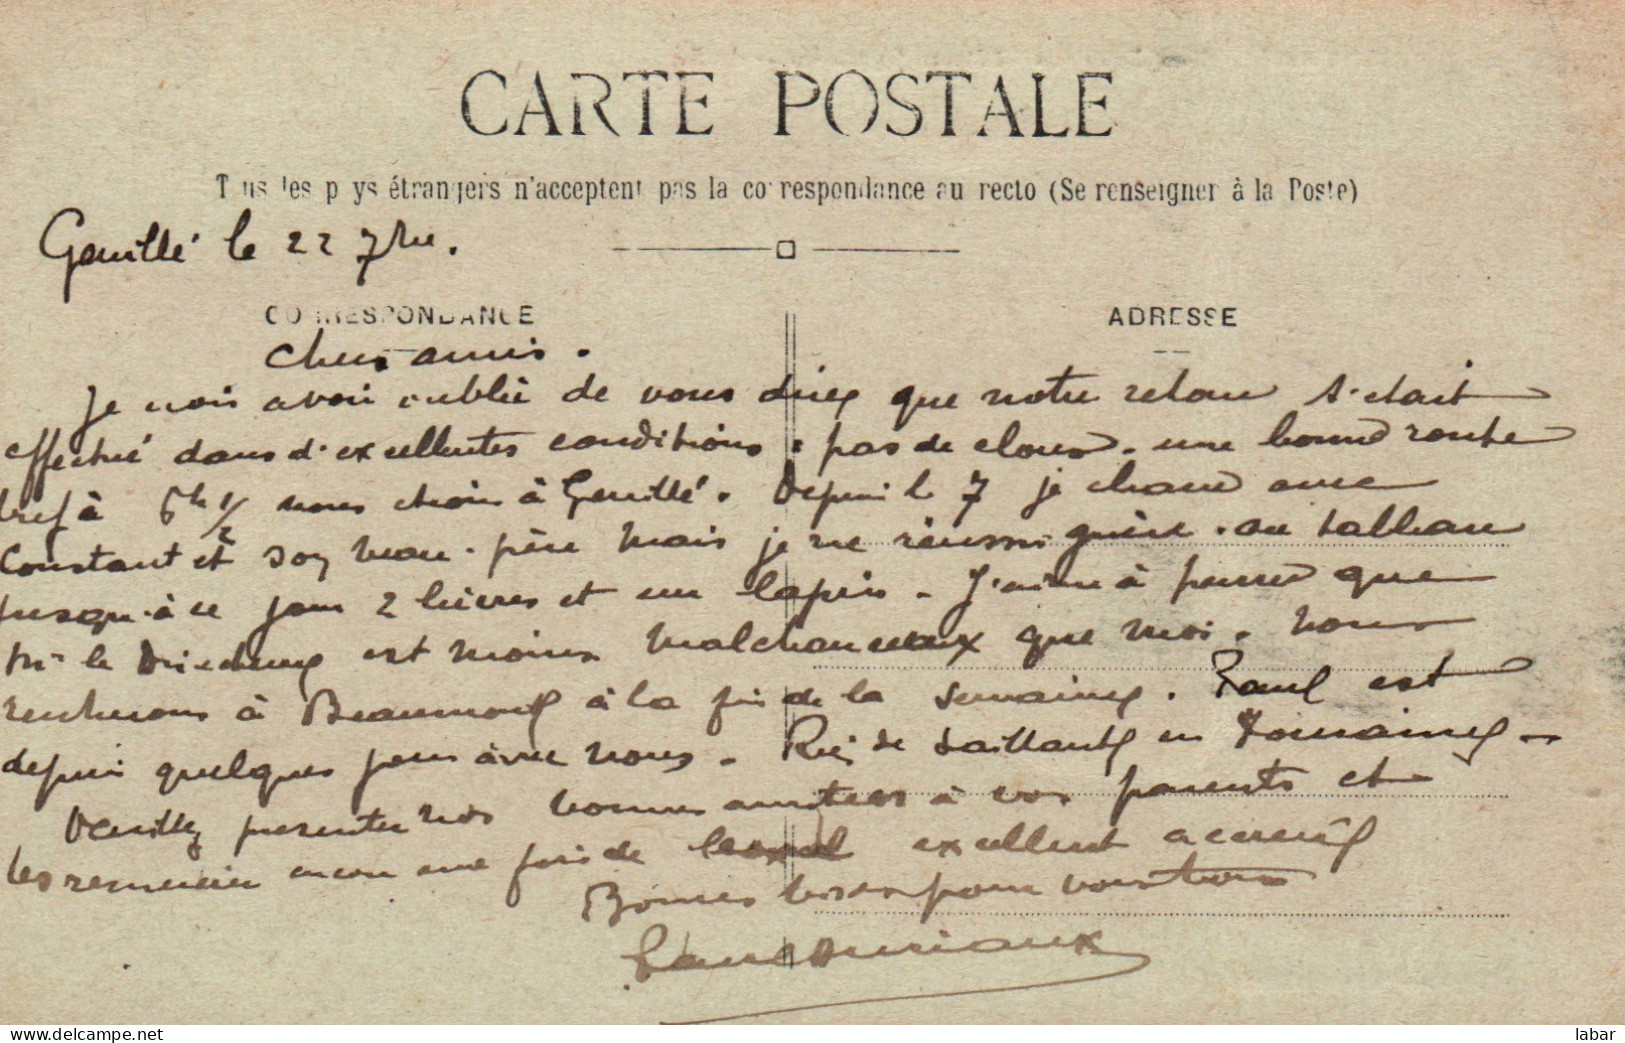 CARTE POSTALE
Tous les pays étrangers n'acceptent pas la correspondance au recto (Se renseigner à la Poste)
Genillé le 22 7bre.
CORRESPONDANCE
ADRESSE
Chers amis.
Je crois avoir oublié de vous dire que notre retour s'était
effectué dans d'excellentes conditions, pas de clous, une bonne route
bref à 6h 1/2 nous étions à Genillé. Depuis le 7 je chasse avec
Constant et son beau-père mais je ne réussis guère. au tableau
jusqu'à ce jour 2 lièvres et un lapin. J'aime à penser que
Mr est moins malchanceux que moi. Nous
rentrerons à Beaumont à la fin de la semaine. Paul est
depuis quelques jours avec nous. Rien de saillant en Touraine.
Veuillez présenter nos bonnes amitiés à vos parents et
les remercier encore une fois de excellent accueil
Bonnes bises pour vous tous